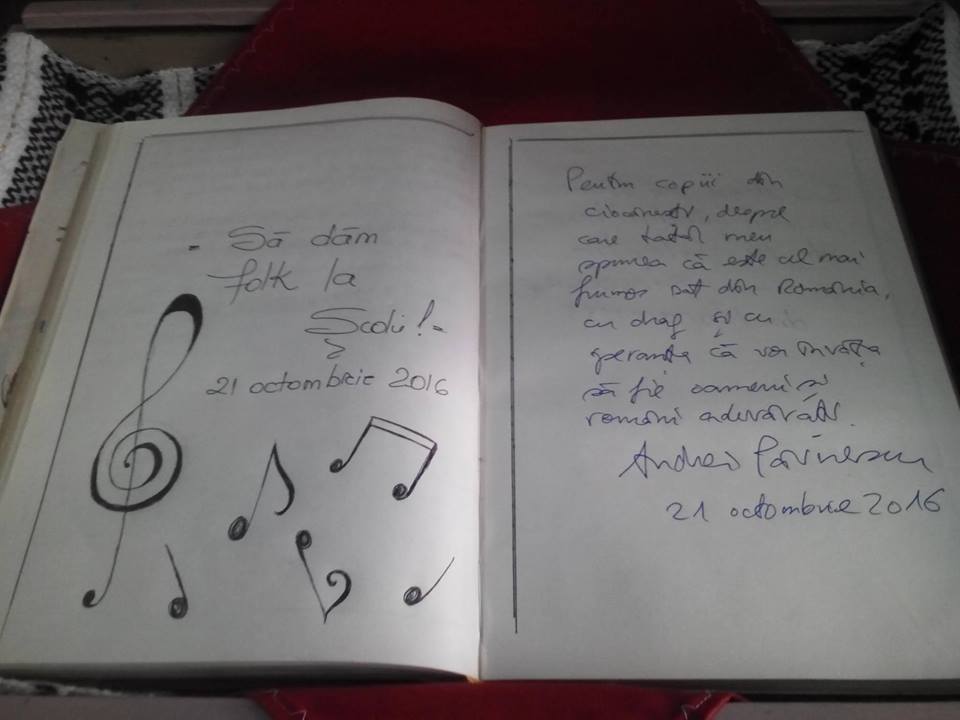 - Să dăm
folk la
Școlii! -
21 octombrie 2016
Pentru copiii din
ciocănești, despre
care tatăl meu
spunea că este cel mai
frumos sat din România,
cu drag și cu
speranța că vor învăța
să fie oameni și
români adevărați.
Andrei Păunescu
21 octombrie 2016